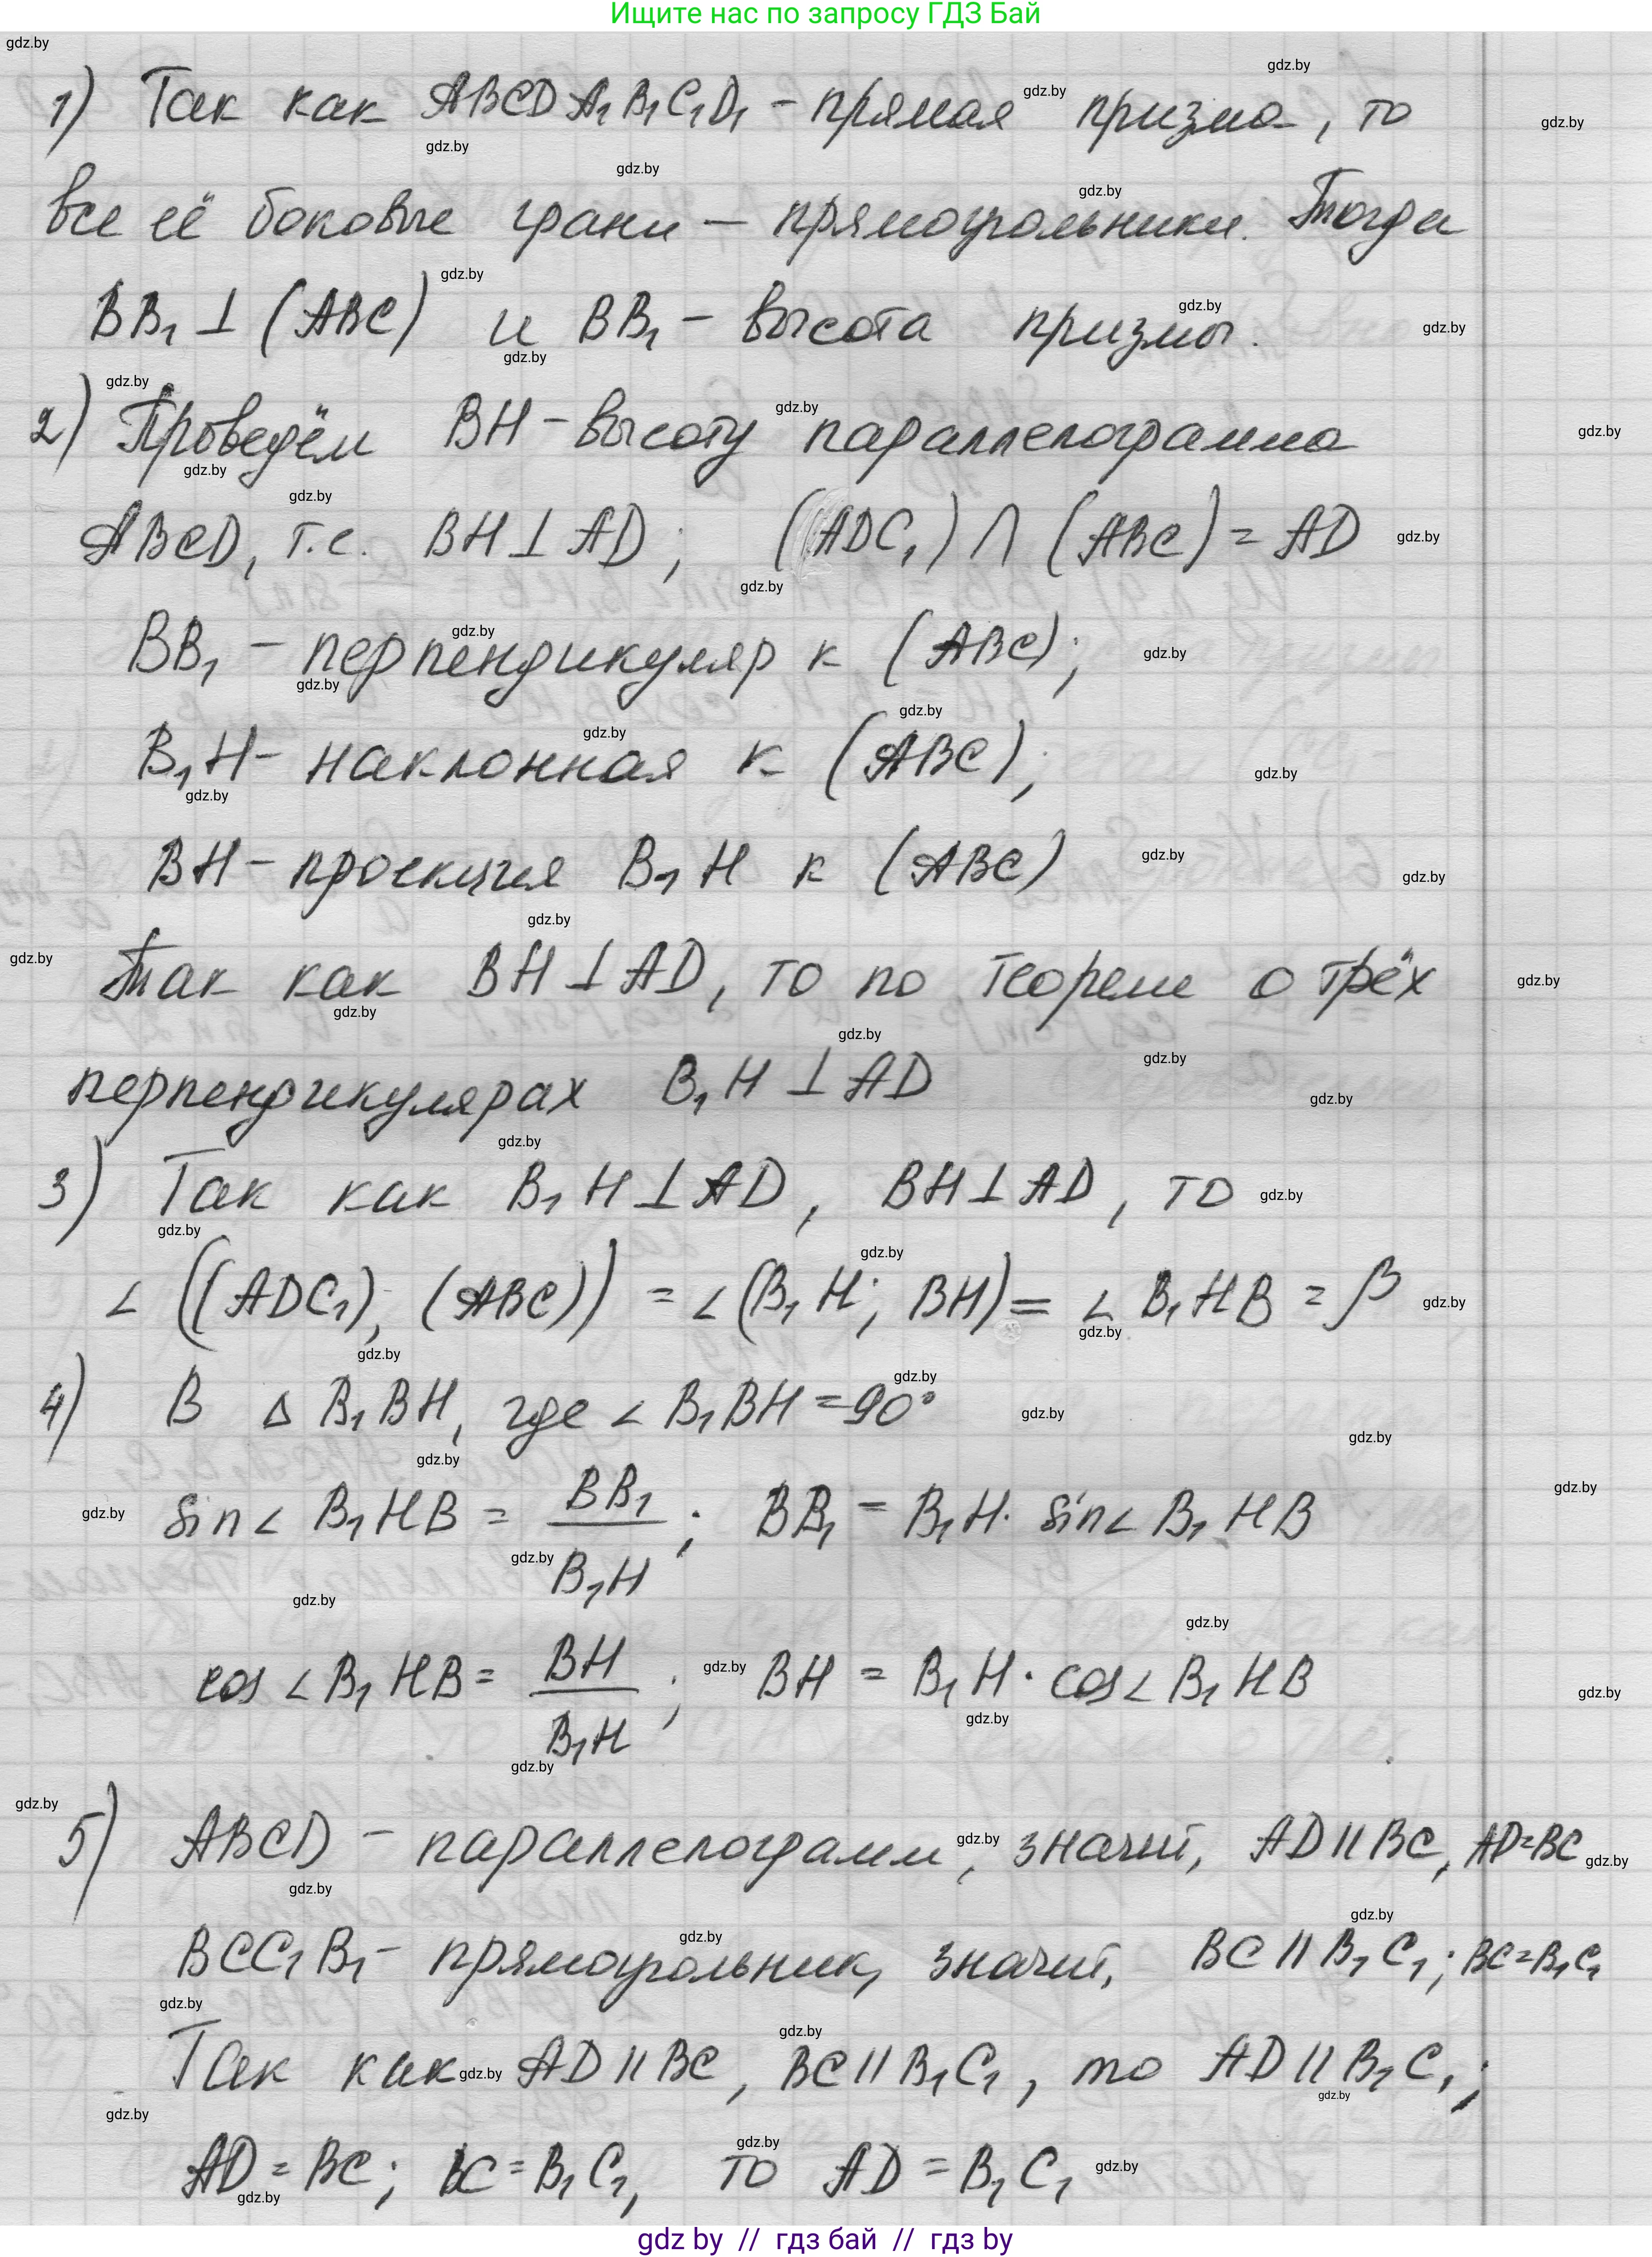 Ищите нас по запросу ГДЗ Бай
1) Так как ABCDA₁B₁C₁D₁ - прямая призма, то
все её боковые грани — прямоугольники. Тогда
BB₁ ⊥ (ABC) и BB₁ - высота призмы.
2) Проведём BH - высоту параллелограмма
ABCD, т.е. BH ⊥ AD; (ADC₁) ∩ (ABC) = AD
BB₁ - перпендикуляр к (ABC);
B₁H - наклонная к (ABC);
BH - проекция B₁H к (ABC)
Так как BH ⊥ AD, то по теореме о трёх
перпендикулярах B₁H ⊥ AD
3) Так как B₁H ⊥ AD, BH ⊥ AD, то
∠((ADC₁), (ABC)) = ∠(B₁H; BH) = ∠B₁HB = β
4) В △ B₁BH, где ∠B₁BH = 90°
sin∠B₁HB = BB₁/B₁H; BB₁ = B₁H · sin∠B₁HB
cos∠B₁HB = BH/B₁H; BH = B₁H · cos∠B₁HB
5) ABCD - параллелограмм, значит, AD || BC, AD=BC
BCC₁B₁ - прямоугольник, значит, BC || B₁C₁; BC=B₁C₁
Так как AD || BC, BC || B₁C₁, то AD || B₁C₁;
AD = BC; BC = B₁C₁, то AD = B₁C₁
gdz by // гдз бай // гдз by